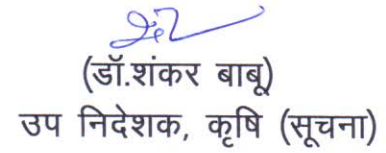 (डॉ.शंकर बाबू)
उप निदेशक, कृषि (सूचना)